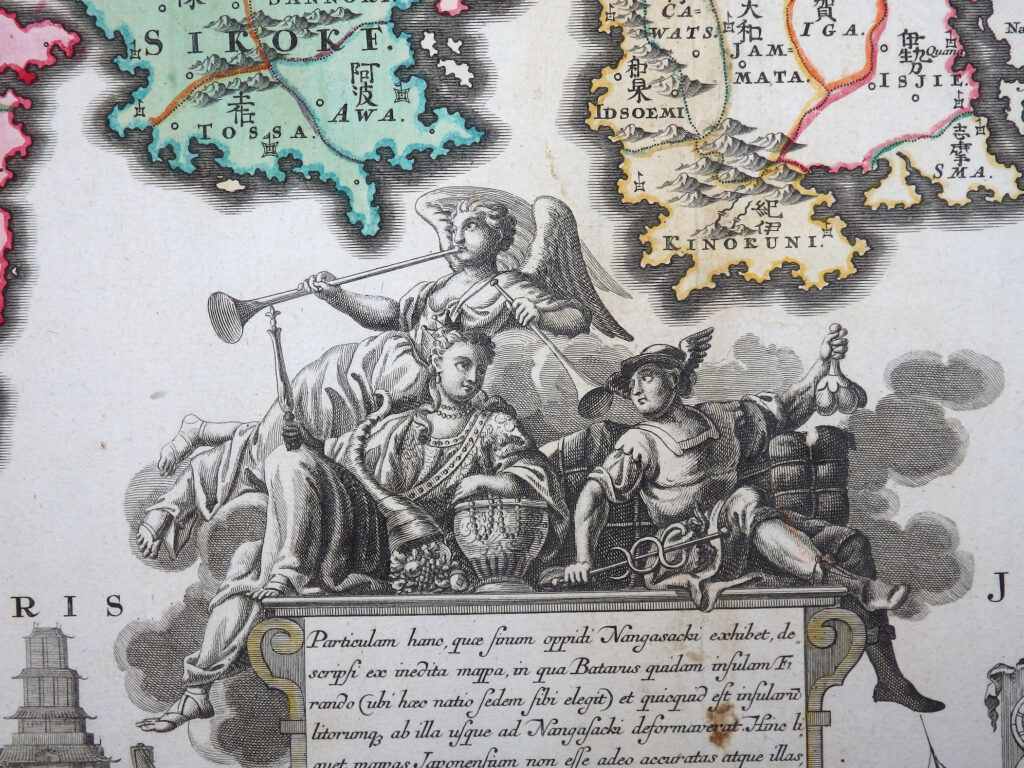 SANNOKI
SIKOKF.
阿波
AWA.
土佐
TOSSA.
CA=
WATS.
大和
JAM=
MATA.
賀
IGA.
伊勢
Quano
ISJIE.
和泉
IDSOEMI
SMA.
紀伊
KINOKUNI.
Na
RIS
J
Particulam hanc, quæ sinum oppidi Nangasacki exhibet, de,
scripsi ex inedita mappa, in qua Batavus quidam insulam Fi
rando (ubi hæc natio sedem sibi elegit) et quicquid est insularū
litorumq, ab illa usque ad Nangasacki deformaverat. Hinc li
quet mappas Japonensium non esse adeo accuratas atque illas,